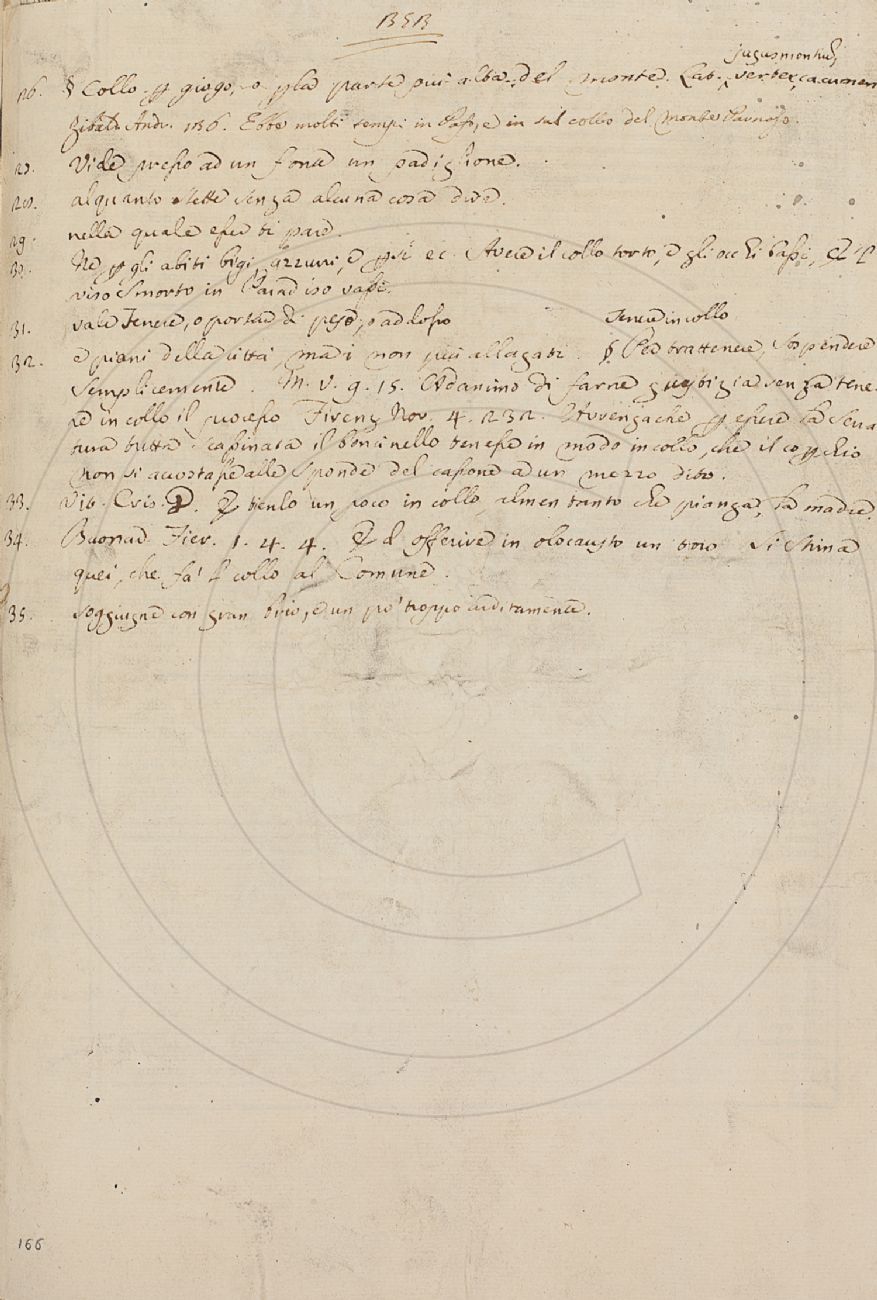 BSB
jugus montium,
26. § Collo p giogo, o p la parte piu alta del monte. Lat. vertex, cacumen
Zibald. Andr. 136. Ebbe molti tempi in e in sul collo del Monte
Vide presso ad un fonte un padiglione.
alquanto stette senza alcuna cosa dire.
29. nella quale esser ti pare.
30. Ne p gli abiti bigi, azzurri, e ec. Avere il collo torto, e gli occhi bassi, e 'l
viso smorto in Paradiso vassi.
31. vale Tenere, o portar di peso, o addosso Tenere in collo
32. e piani della città, ma i non più allagati. § Per trattenere, sospendere
semplicemente. M. V. 9. 15. Ed animo di farne giustizia senza tene-
re in collo il processo Firenz. Nov. 4. 232. Avvengachè p essere la serra
tura tutta il boncinello tenesse in modo in collo, che il copchio
non si accostasse alle sponde del cassone a un mezzo dito.
33. Vit. Cris. E tienlo un poco in collo, almen tanto che pianga la madre.
34. Buonar. Fier. 1. 4. 4. E d' offerire in olocausto un toro Si stina
quei, che fa' l collo al Comune.
35. soggiugne con gran brio, e un po' troppo arditamente.
166